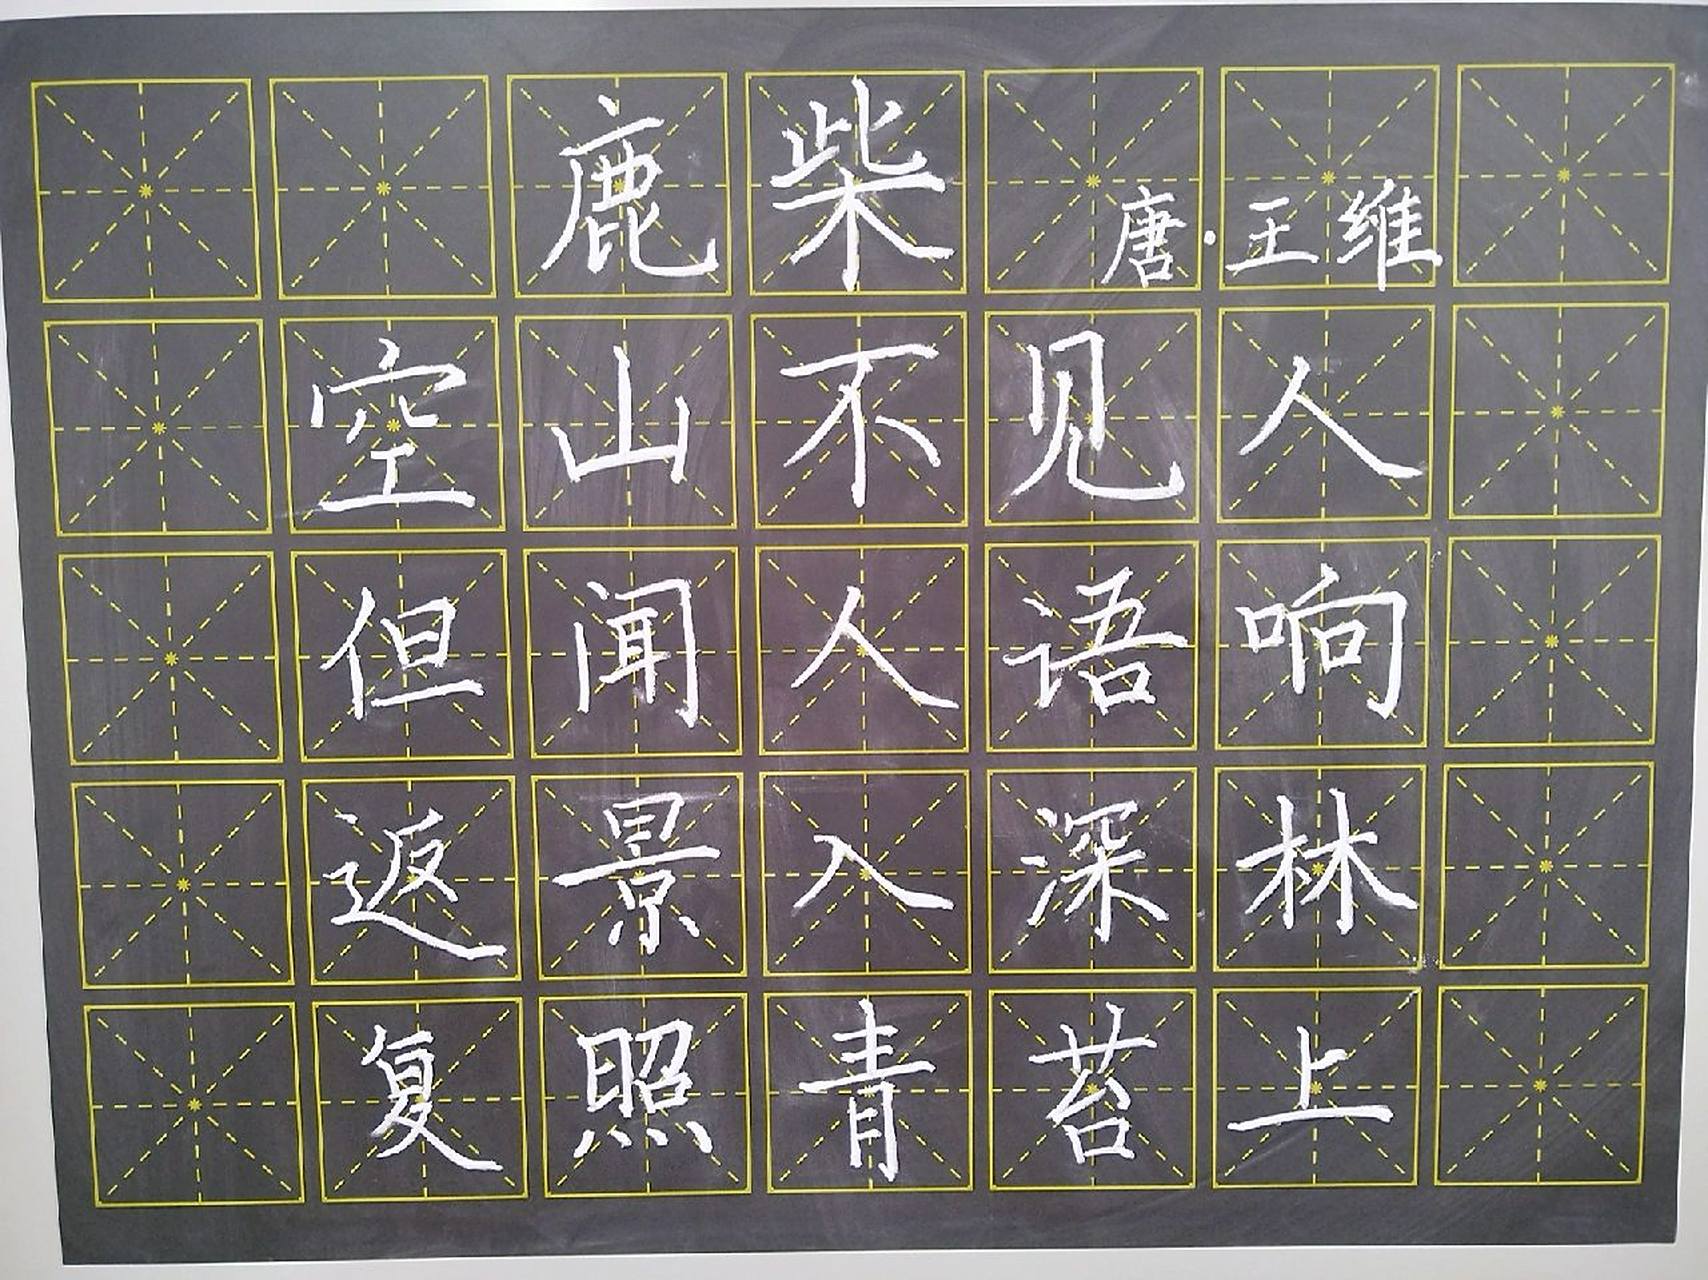 鹿柴 唐·王维
空山不见人
但闻人语响
返景入深林
复照青苔上